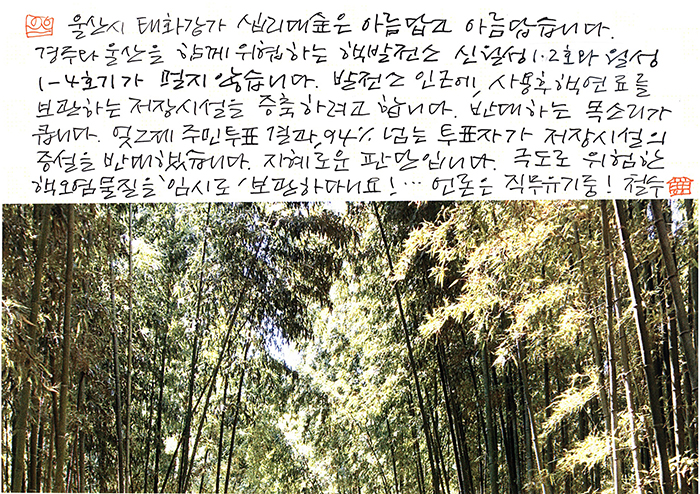 울산시 태화강가 십리대숲은 아름답고 아름답습니다.
경주와 울산을 함께 위협하는 핵발전소 신월성1·2호와 월성
1-4호기가 멀지 않습니다. 발전소 인근에, 사용후핵연료를
보관하는 저장시설을 증축하려고 합니다. 반대하는 목소리가
큽니다. 엊그제 주민투표 결과, 94% 넘는 투표자가 저장시설의
증설을 반대했습니다. 지혜로운 판단입니다. 극도로 위험한
핵오염물질을 '임시로' 보관하다니요!… 언론은 직무유기중! 철수